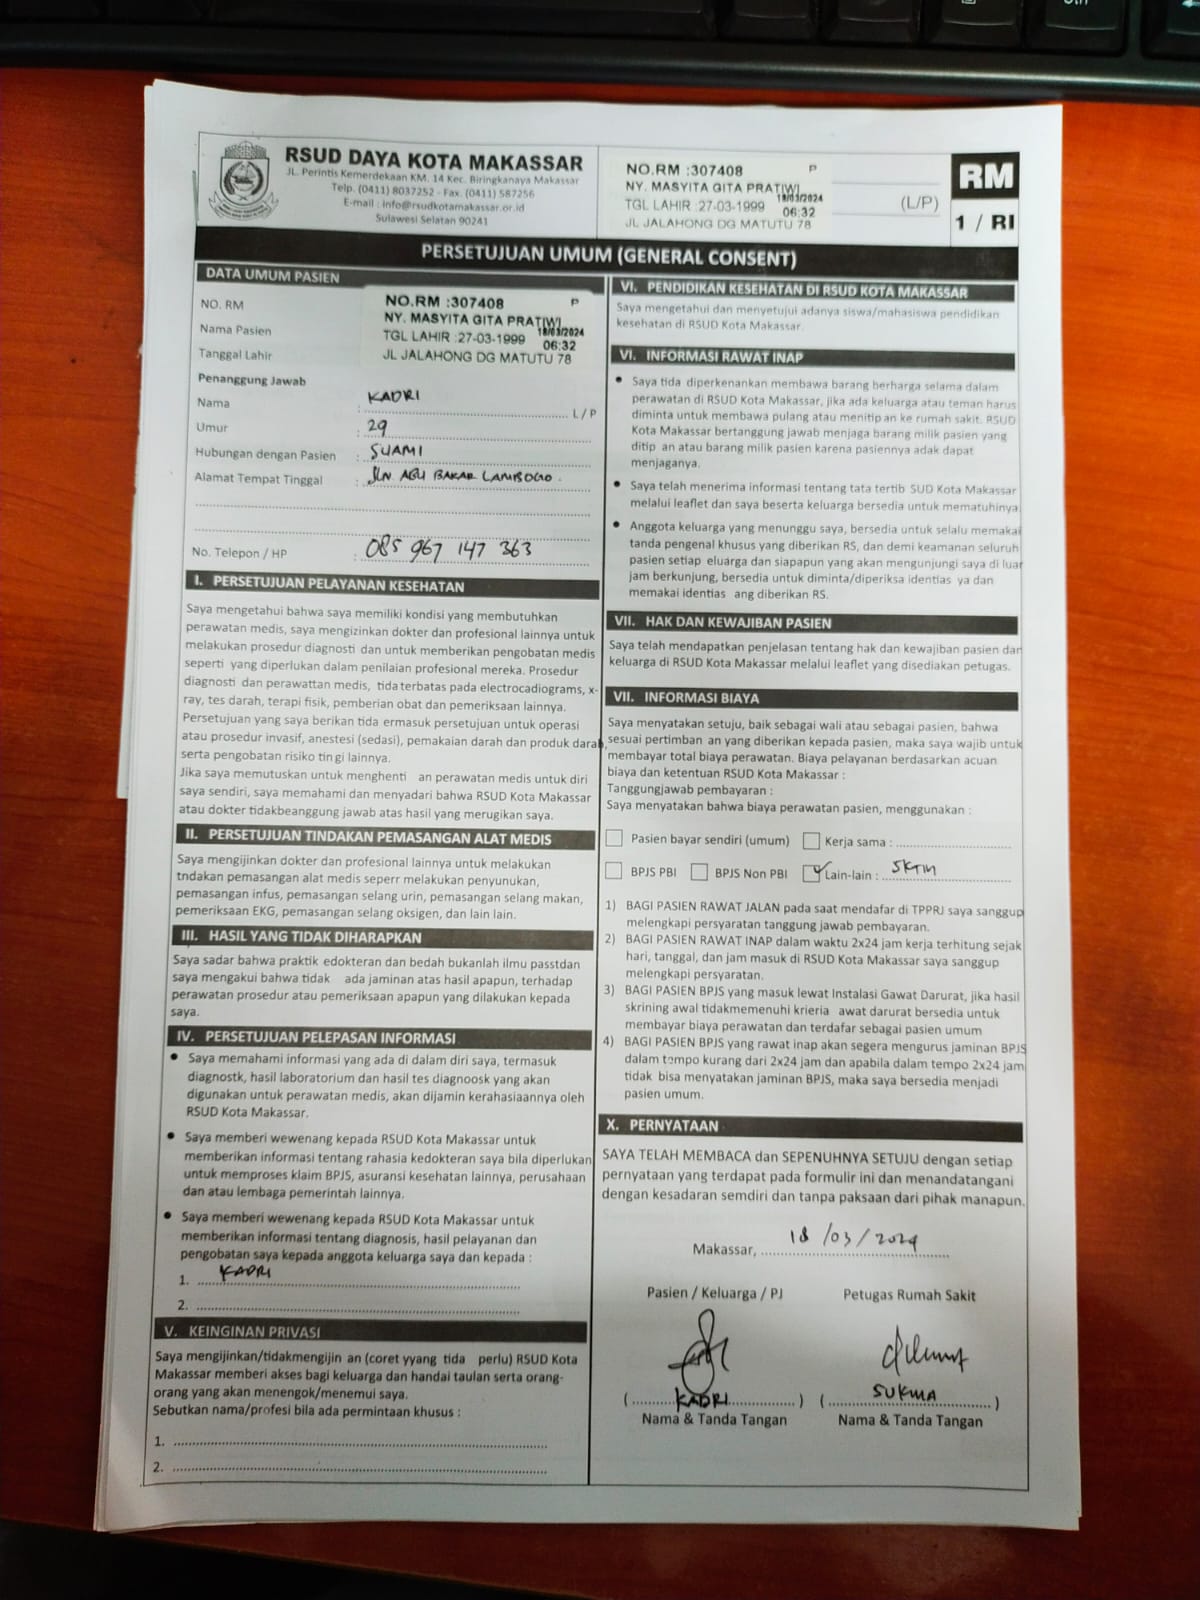 RSUD DAYA KOTA MAKASSAR
JL. Perintis Kemerdekaan KM. 14 Kec. Biringkanaya Makassar
Telp. (0411) 8037252 - Fax. (0411) 587256
E-mail : info@rsudkotamakassar.or.id
Sulawesi Selatan 90241
NO.RM :307408 P
NY. MASYITA GITA PRATIWI
18/03/2024
TGL LAHIR :27-03-1999 06:32
JL JALAHONG DG MATUTU 78
(L/P)
RM
1 / RI
PERSETUJUAN UMUM (GENERAL CONSENT)
DATA UMUM PASIEN
NO. RM
Nama Pasien
Tanggal Lahir
NO.RM :307408 P
NY. MASYITA GITA PRATIWI
18/03/2024
TGL LAHIR :27-03-1999 06:32
JL JALAHONG DG MATUTU 78
Penanggung Jawab
Nama : KADRI L / P
Umur : 29
Hubungan dengan Pasien : SUAMI
Alamat Tempat Tinggal : JLN ABU BAKAR LAMBOGO
No. Telepon / HP : 085 967 147 363
I. PERSETUJUAN PELAYANAN KESEHATAN
Saya mengetahui bahwa saya memiliki kondisi yang membutuhkan
perawatan medis, saya mengizinkan dokter dan profesional lainnya untuk
melakukan prosedur diagnosti dan untuk memberikan pengobatan medis
seperti yang diperlukan dalam penilaian profesional mereka. Prosedur
diagnosti dan perawattan medis, tida terbatas pada electrocadiograms, x-
ray, tes darah, terapi fisik, pemberian obat dan pemeriksaan lainnya.
Persetujuan yang saya berikan tida ermasuk persetujuan untuk operasi
atau prosedur invasif, anestesi (sedasi), pemakaian darah dan produk darah,
serta pengobatan risiko tin gi lainnya.
Jika saya memutuskan untuk menghenti an perawatan medis untuk diri
saya sendiri, saya memahami dan menyadari bahwa RSUD Kota Makassar
atau dokter tidakbeanggung jawab atas hasil yang merugikan saya.
II. PERSETUJUAN TINDAKAN PEMASANGAN ALAT MEDIS
Saya mengijinkan dokter dan profesional lainnya untuk melakukan
tndakan pemasangan alat medis seperr melakukan penyunukan,
pemasangan infus, pemasangan selang urin, pemasangan selang makan,
pemeriksaan EKG, pemasangan selang oksigen, dan lain lain.
III. HASIL YANG TIDAK DIHARAPKAN
Saya sadar bahwa praktik edokteran dan bedah bukanlah ilmu passtdan
saya mengakui bahwa tidak ada jaminan atas hasil apapun, terhadap
perawatan prosedur atau pemeriksaan apapun yang dilakukan kepada
saya.
IV. PERSETUJUAN PELEPASAN INFORMASI
• Saya memahami informasi yang ada di dalam diri saya, termasuk
diagnostk, hasil laboratorium dan hasil tes diagnoosk yang akan
digunakan untuk perawatan medis, akan dijamin kerahasiaannya oleh
RSUD Kota Makassar.
• Saya memberi wewenang kepada RSUD Kota Makassar untuk
memberikan informasi tentang rahasia kedokteran saya bila diperlukan
untuk memproses klaim BPJS, asuransi kesehatan lainnya, perusahaan
dan atau lembaga pemerintah lainnya.
• Saya memberi wewenang kepada RSUD Kota Makassar untuk
memberikan informasi tentang diagnosis, hasil pelayanan dan
pengobatan saya kepada anggota keluarga saya dan kepada :
1. KADRI
2.
V. KEINGINAN PRIVASI
Saya mengijinkan/tidakmengijin an (coret yyang tida perlu) RSUD Kota
Makassar memberi akses bagi keluarga dan handai taulan serta orang-
orang yang akan menengok/menemui saya.
Sebutkan nama/profesi bila ada permintaan khusus :
1.
2.
VI. PENDIDIKAN KESEHATAN DI RSUD KOTA MAKASSAR
Saya mengetahui dan menyetujui adanya siswa/mahasiswa pendidikan
kesehatan di RSUD Kota Makassar.
VI. INFORMASI RAWAT INAP
• Saya tida diperkenankan membawa barang berharga selama dalam
perawatan di RSUD Kota Makassar, jika ada keluarga atau teman harus
diminta untuk membawa pulang atau menitip an ke rumah sakit. RSUD
Kota Makassar bertanggung jawab menjaga barang milik pasien yang
ditip an atau barang milik pasien karena pasiennya adak dapat
menjaganya.
• Saya telah menerima informasi tentang tata tertib SUD Kota Makassar
melalui leaflet dan saya beserta keluarga bersedia untuk mematuhinya
• Anggota keluarga yang menunggu saya, bersedia untuk selalu memakai
tanda pengenal khusus yang diberikan RS, dan demi keamanan seluruh
pasien setiap eluarga dan siapapun yang akan mengunjungi saya di luar
jam berkunjung, bersedia untuk diminta/diperiksa identias ya dan
memakai identias ang diberikan RS.
VII. HAK DAN KEWAJIBAN PASIEN
Saya telah mendapatkan penjelasan tentang hak dan kewajiban pasien dan
keluarga di RSUD Kota Makassar melalui leaflet yang disediakan petugas.
VII. INFORMASI BIAYA
Saya menyatakan setuju, baik sebagai wali atau sebagai pasien, bahwa
sesuai pertimban an yang diberikan kepada pasien, maka saya wajib untuk
membayar total biaya perawatan. Biaya pelayanan berdasarkan acuan
biaya dan ketentuan RSUD Kota Makassar :
Tanggungjawab pembayaran :
Saya menyatakan bahwa biaya perawatan pasien, menggunakan :
Pasien bayar sendiri (umum) Kerja sama :
BPJS PBI BPJS Non PBI Lain-lain : SKTM
1) BAGI PASIEN RAWAT JALAN pada saat mendafar di TPPRJ saya sanggup
melengkapi persyaratan tanggung jawab pembayaran.
2) BAGI PASIEN RAWAT INAP dalam waktu 2x24 jam kerja terhitung sejak
hari, tanggal, dan jam masuk di RSUD Kota Makassar saya sanggup
melengkapi persyaratan.
3) BAGI PASIEN BPJS yang masuk lewat Instalasi Gawat Darurat, jika hasil
skrining awal tidakmemenuhi krieria awat darurat bersedia untuk
membayar biaya perawatan dan terdafar sebagai pasien umum
4) BAGI PASIEN BPJS yang rawat inap akan segera mengurus jaminan BPJS
dalam tempo kurang dari 2x24 jam dan apabila dalam tempo 2x24 jam
tidak bisa menyatakan jaminan BPJS, maka saya bersedia menjadi
pasien umum.
X. PERNYATAAN
SAYA TELAH MEMBACA dan SEPENUHNYA SETUJU dengan setiap
pernyataan yang terdapat pada formulir ini dan menandatangani
dengan kesadaran semdiri dan tanpa paksaan dari pihak manapun.
Makassar, 18 /03/2024
Pasien / Keluarga / PJ Petugas Rumah Sakit
( KADRI ) ( SUKMA )
Nama & Tanda Tangan Nama & Tanda Tangan